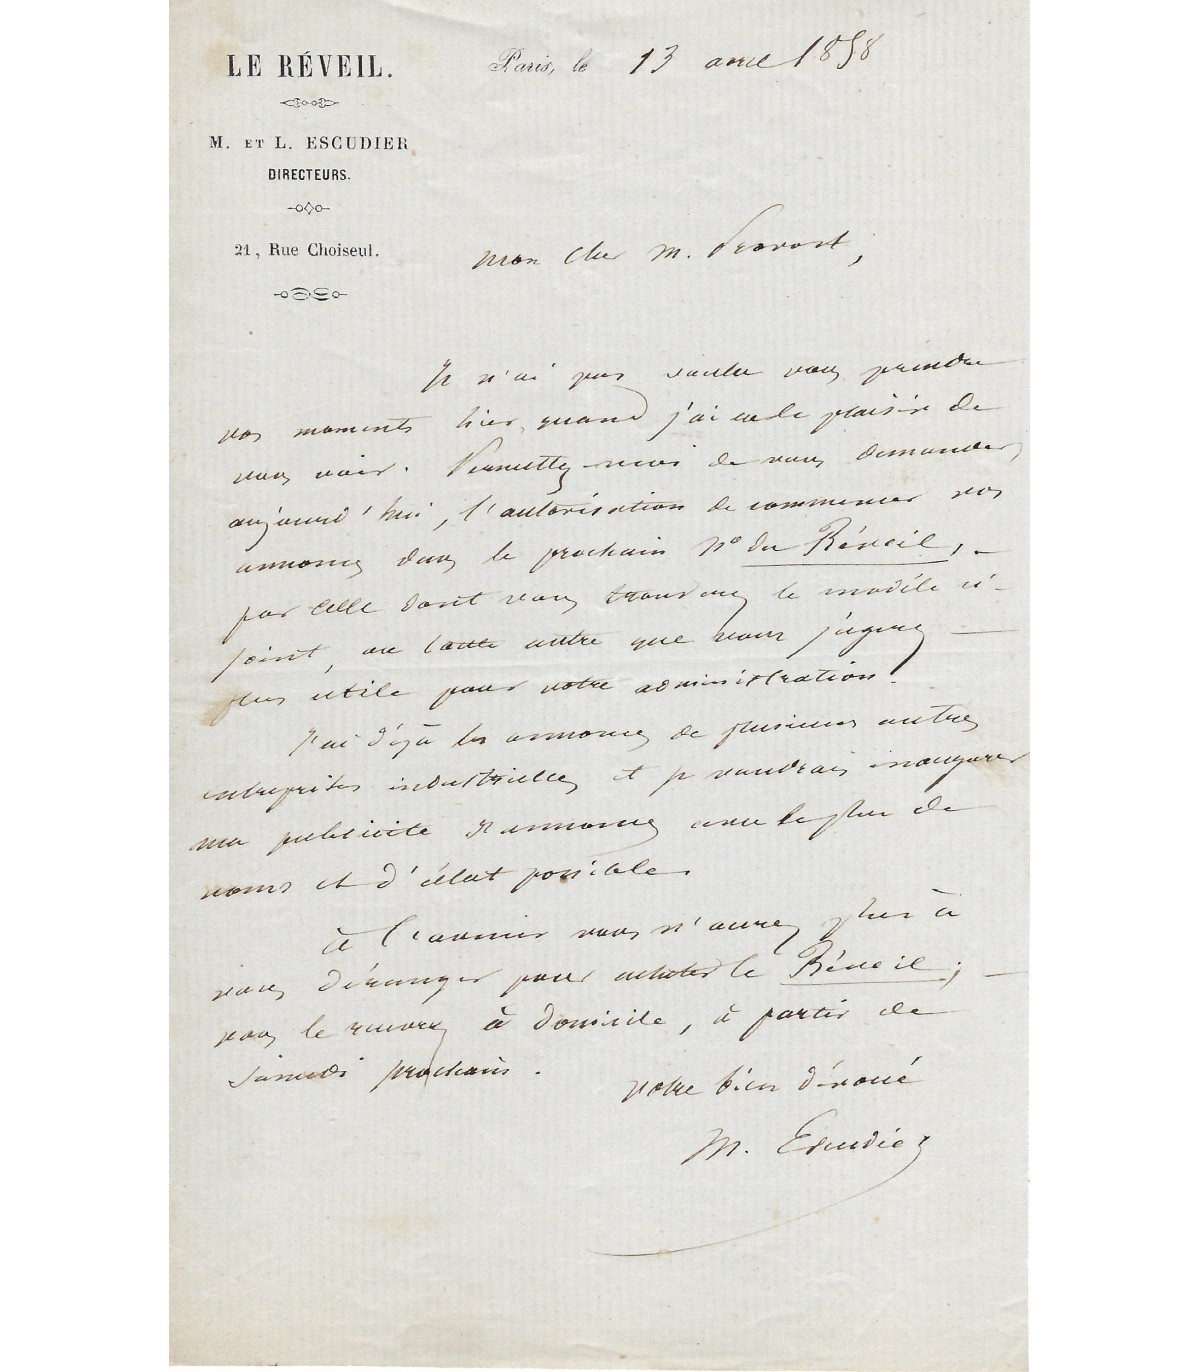 LE RÉVEIL.
Paris, le 13 avril 1858
M. ET L. ESCUDIER
DIRECTEURS.
21, Rue Choiseul.
mon cher M. Provost,
Je n'ai pas voulu vous prendre
vos moments hier, quand j'ai eu le plaisir de
vous voir. Permettez-moi de vous demander,
aujourd'hui, l'autorisation de commencer vos
annonces dans le prochain No du Réveil,
par celle dont vous trouverez le modèle ci-
joint, ou toute autre que vous jugerez
plus utile pour votre administration.
J'ai déjà les annonces de plusieurs autres
entreprises industrielles et je voudrais inaugurer
ma publicité d'annonces avec le plus de
noms et d'éclat possible.
à l'avenir vous n'aurez plus à
vous déranger pour acheter le Réveil;
vous le recevrez à domicile, à partir de
samedi prochain.
votre bien dévoué
M. Escudier